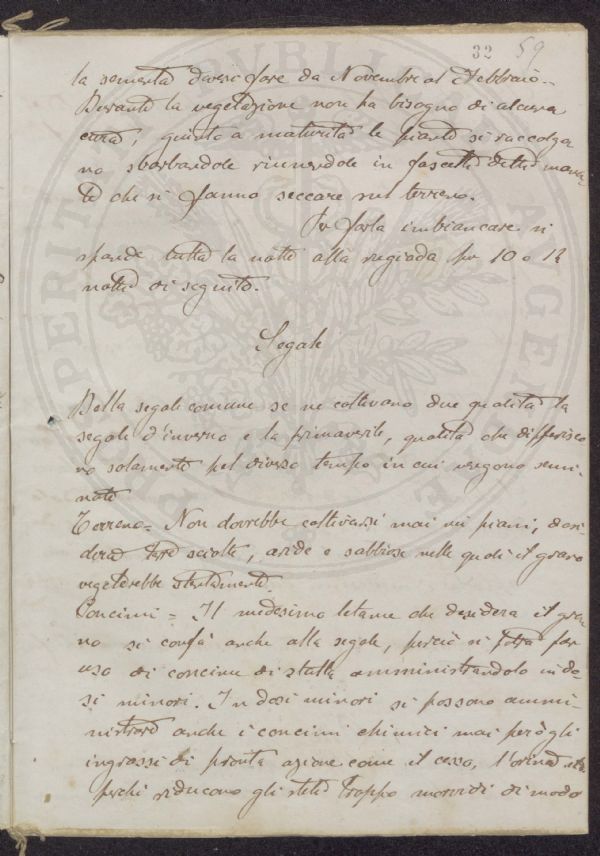 32 59
la sementa devesi fare da Novembre al Febbraio.
Durante la vegetazione non ha bisogno di alcuna
cura, giunta a maturità le piante si raccolga
no sbarbandole riunendole in fascetti dette mana
te che si fanno seccare sul terreno.
Per farla imbiancare si
spande tutta la notte alla rugiada per 10 o 12
notte di seguito.
Segale
Della segale comune se ne coltivano due qualità la
segale d'inverno e la primaverile, qualità che differisco
no solamente pel diverso tempo in cui vengono semi-
nate
Terreno = Non dovrebbe coltivarsi mai nei piani, desi
dera terre sciolte, aride e sabbiose nelle quali il grano
vegeterebbe stentamente.
Concimi = Il medesimo letame che desidera il gra
no si confà anche alla segale, perciò si potrà far
uso di concime di stalla amministrandolo in do-
si minori. In dosi minori si possono ammi-
nistrare anche i concimi chimici mai però gli
ingrassi di pronta azione come il cesso, l'orina
perchè riducono gli steli troppo morvidi di modo
PVBLIC AVGENDAE PROSPERITATI